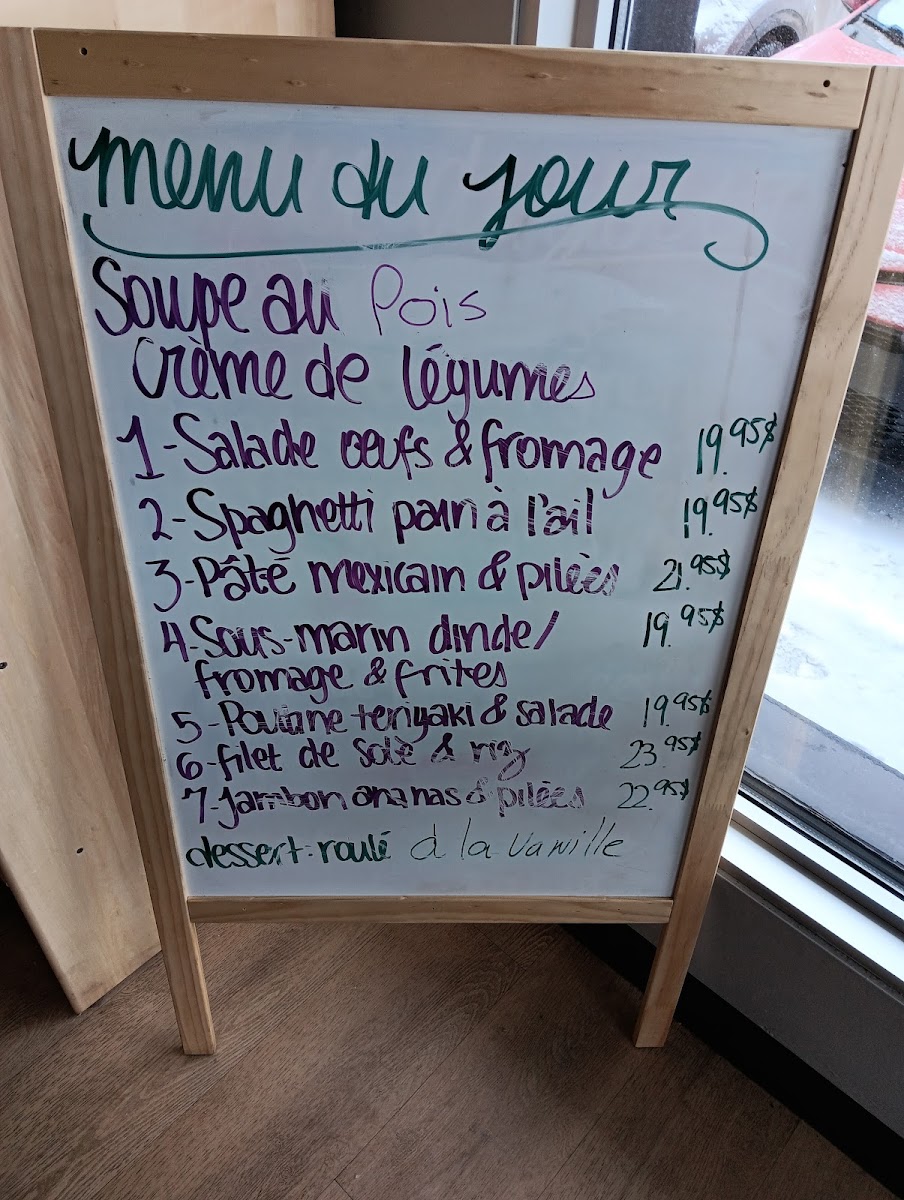 menu du jour
Soupe au Pois
Crème de légumes
1-Salade œufs & fromage 19.95$
2-Spaghetti pain à l'ail 19.95$
3-Pâté mexicain & pilées 21.95$
4-Sous-marin dinde/ 19.95$
fromage & frites
5-Poulane teriyaki & salade 19.95$
6-filet de sole & riz 23.95$
7-Jambon ananas & pilées 22.95$
dessert: roulé à la vanille